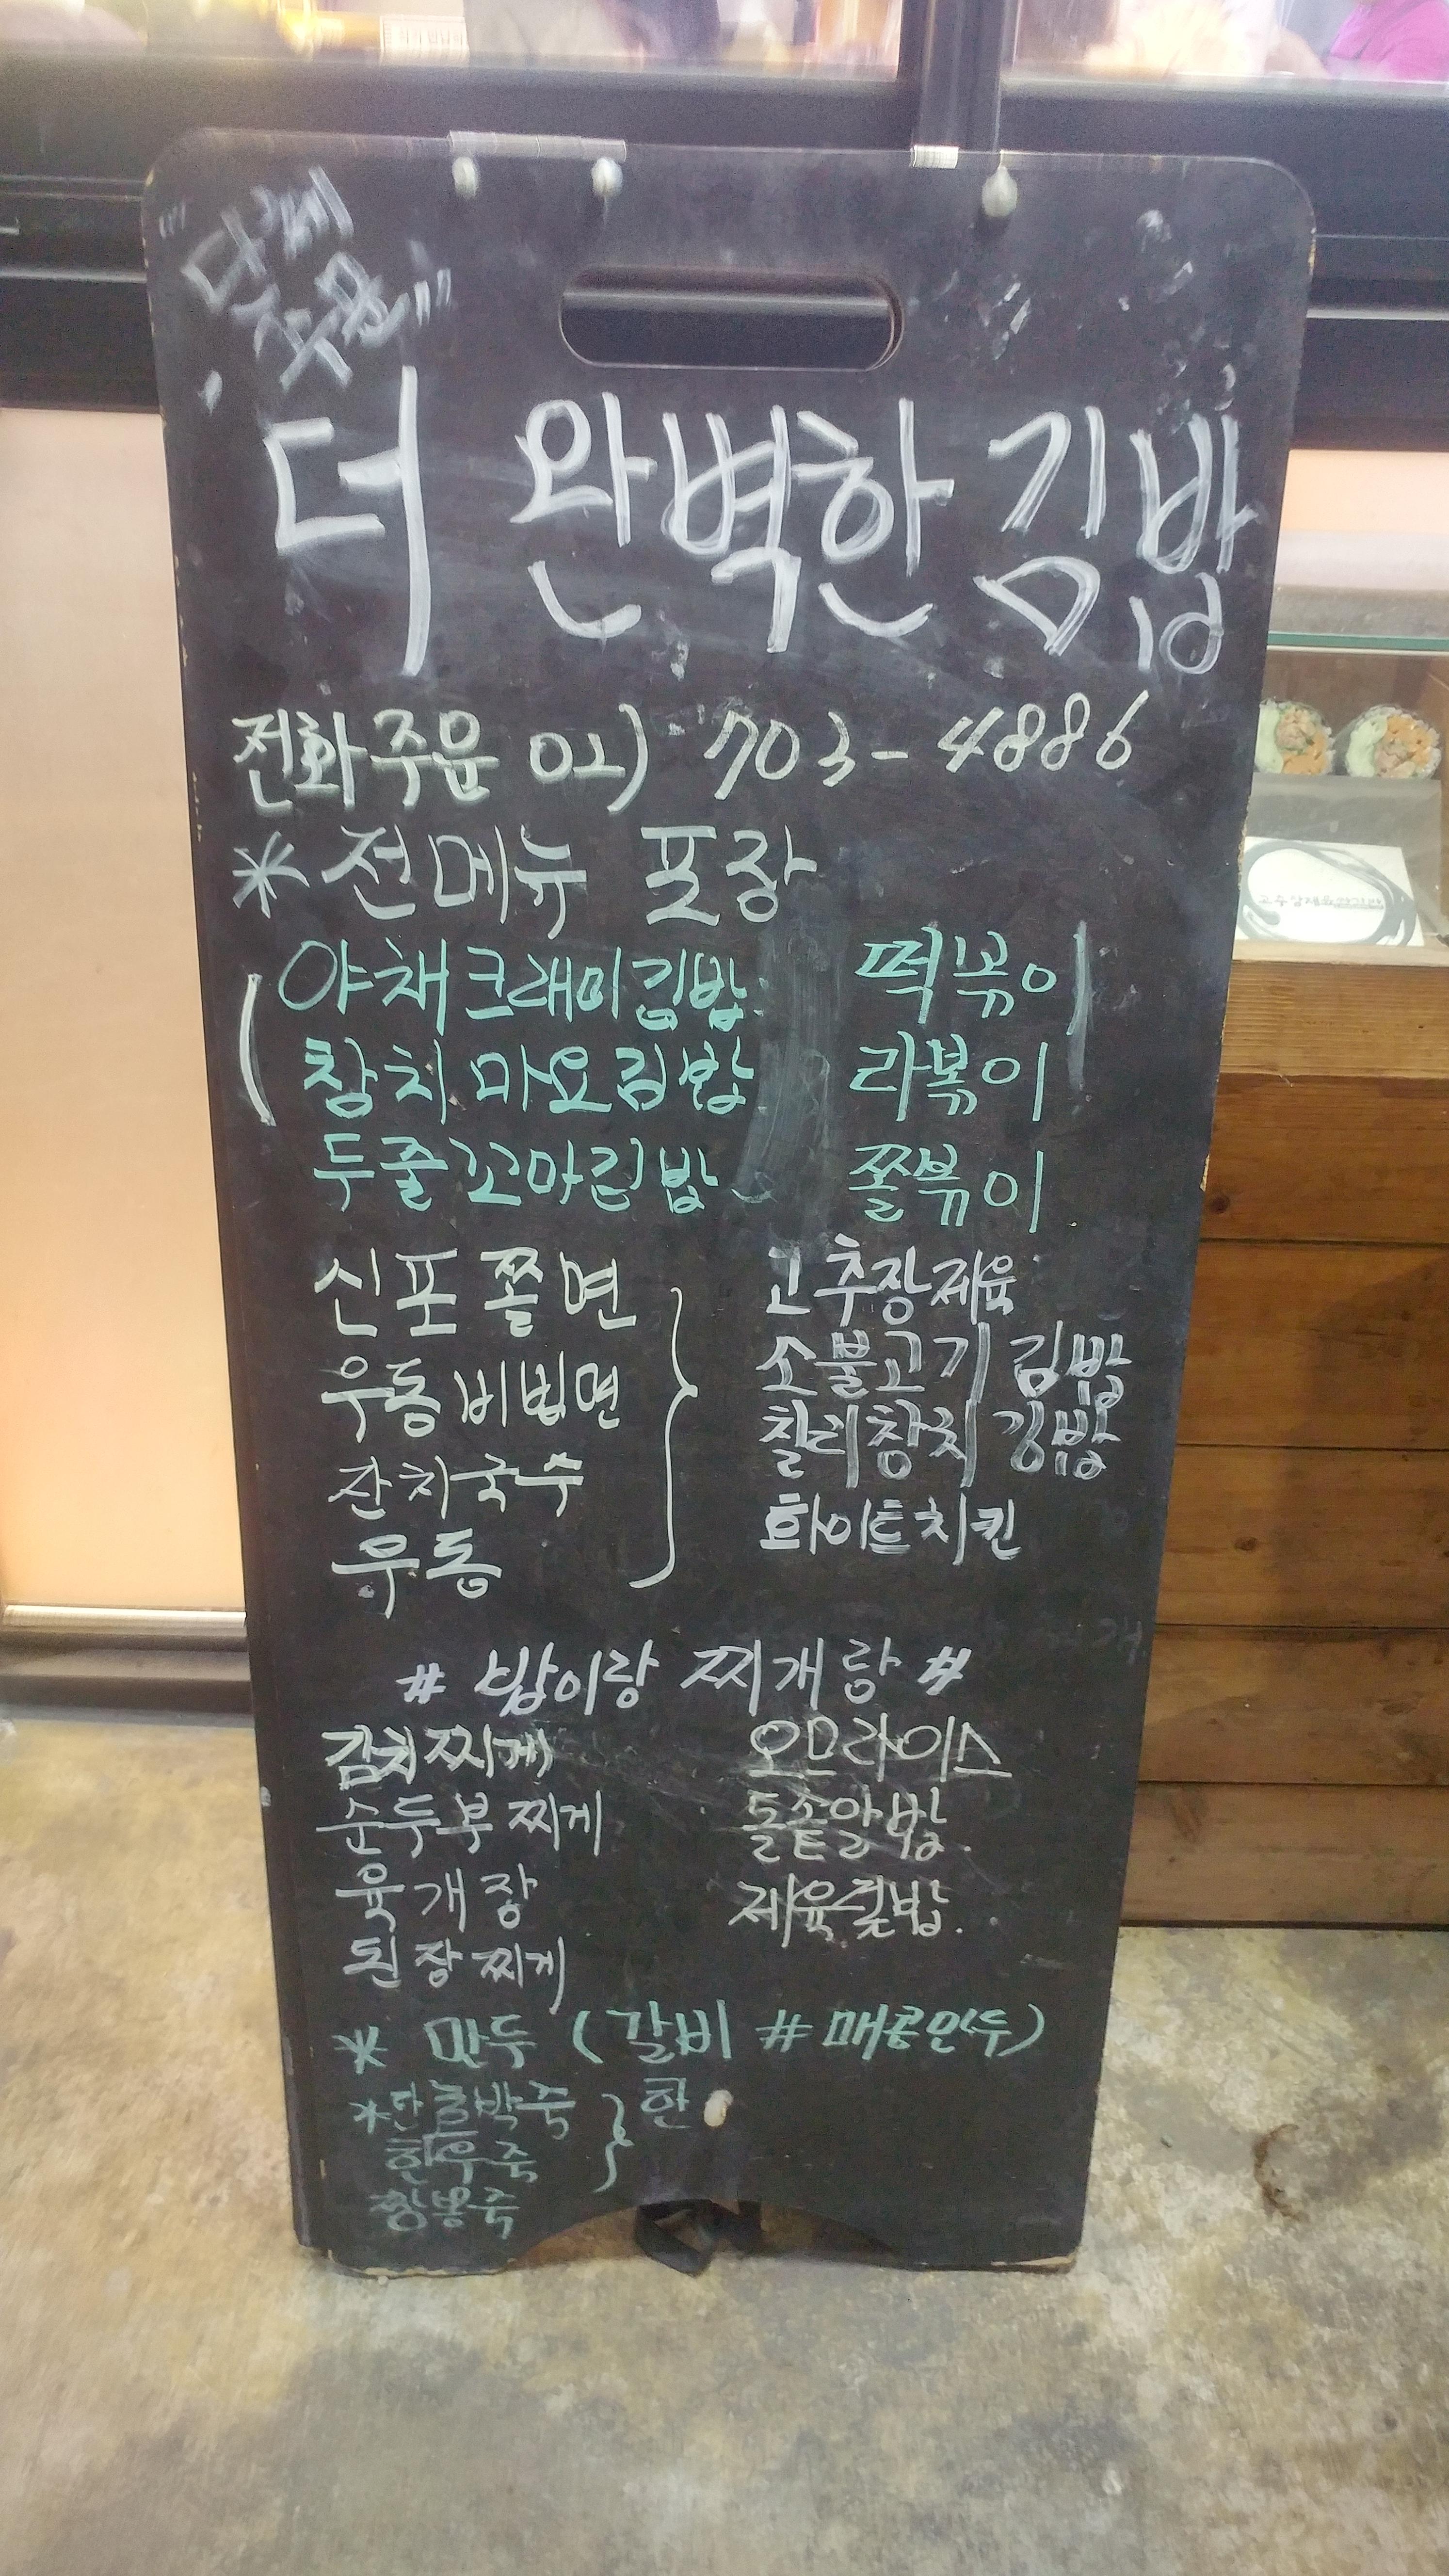 "단체
주문"
더 완벽한 김밥
전화주문 02) 703-4886
* 전메뉴 포장
야채크래미김밥 떡볶이
참치마요김밥 라볶이
두줄꼬마김밥 쫄볶이
신포쫄면
우동비빔면
잔치국수
우동
고추장제육
소불고기 김밥
칠리참치 김밥
화이트치킨
# 밥이랑 찌개랑 #
김치찌게 오므라이스
순두부찌게 돌솥알밥.
육개장 제육덮밥.
된장찌게
* 만두 (갈비 # 매콤만두)
*단호박죽 } 한
한우죽